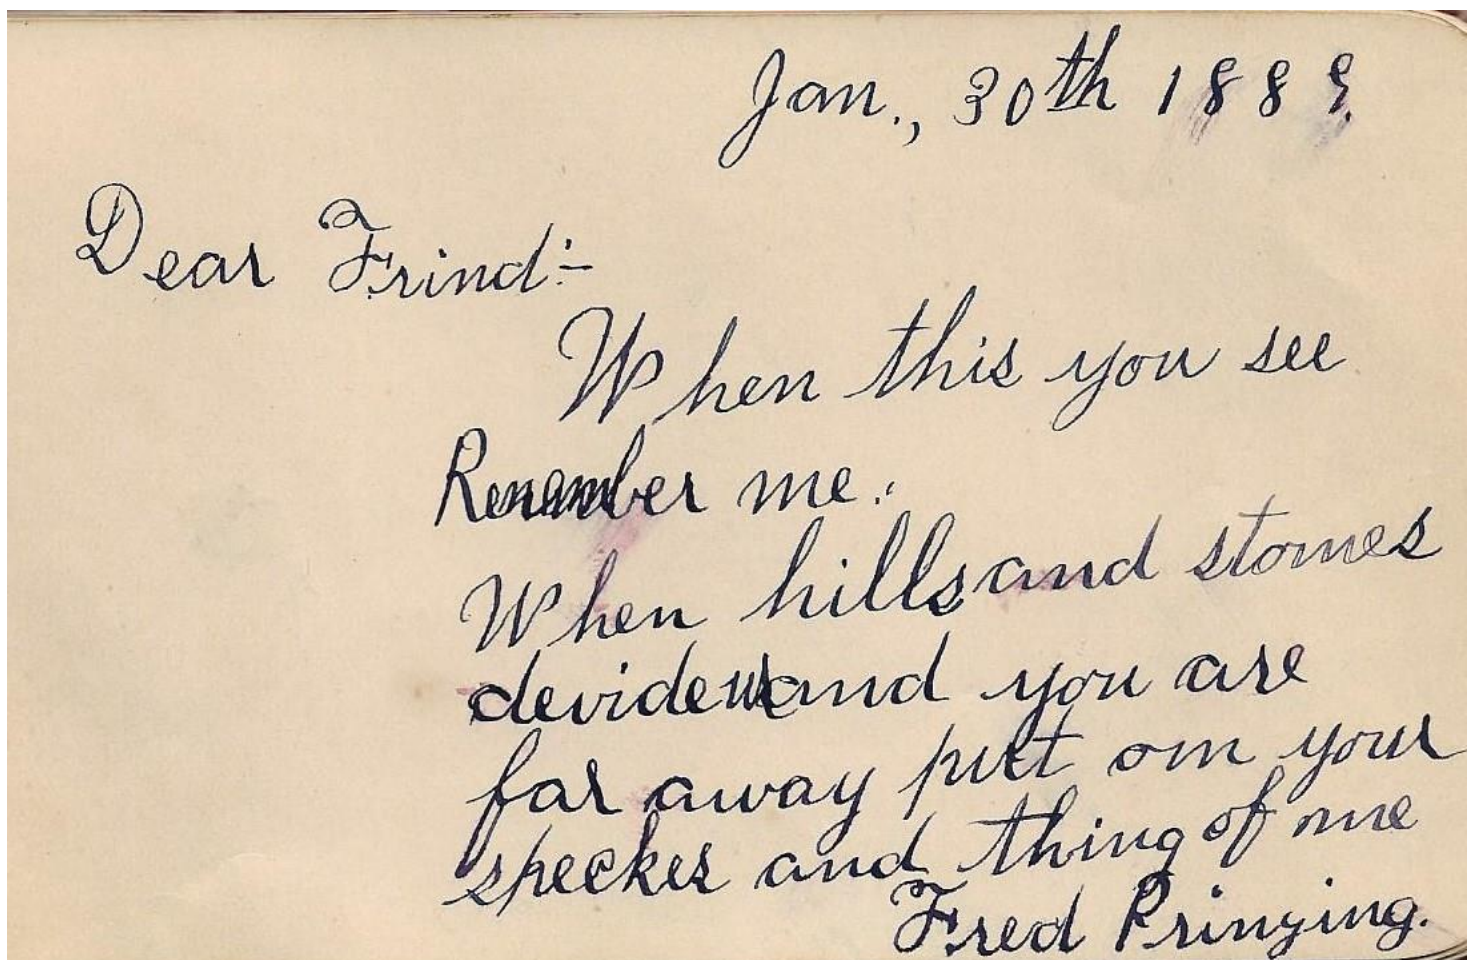 Jan., 30th 1889.
Dear Frind:-
When this you see
Remember me.
When hills and stones
devide us and you are
far away put on your
speckes and thing of me
Fred